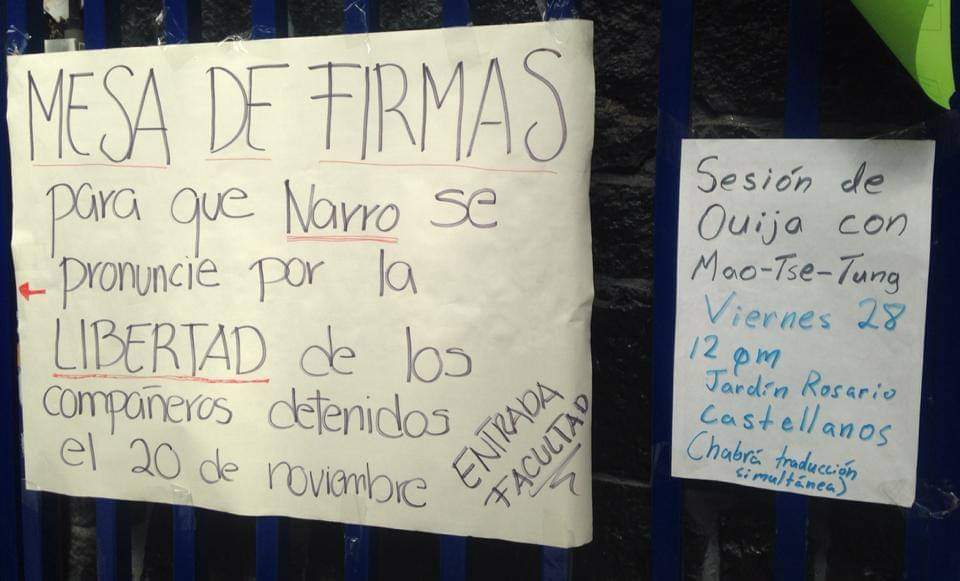 MESA DE FIRMAS
para que Narro se
pronuncie por la
LIBERTAD de los
compañeros detenidos
el 20 de noviembre
ENTRADA
FACULTAD
Sesión de
Ouija con
Mao-Tse-Tung
Viernes 28
12 pm
Jardín Rosario
Castellanos
(habrá traducción
simultánea)